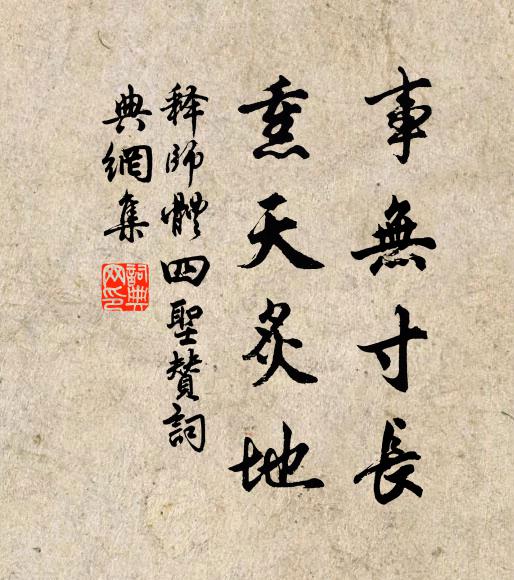 事無寸長
熏天炙地
释師體四聖賛詞
典網集
詞典網印